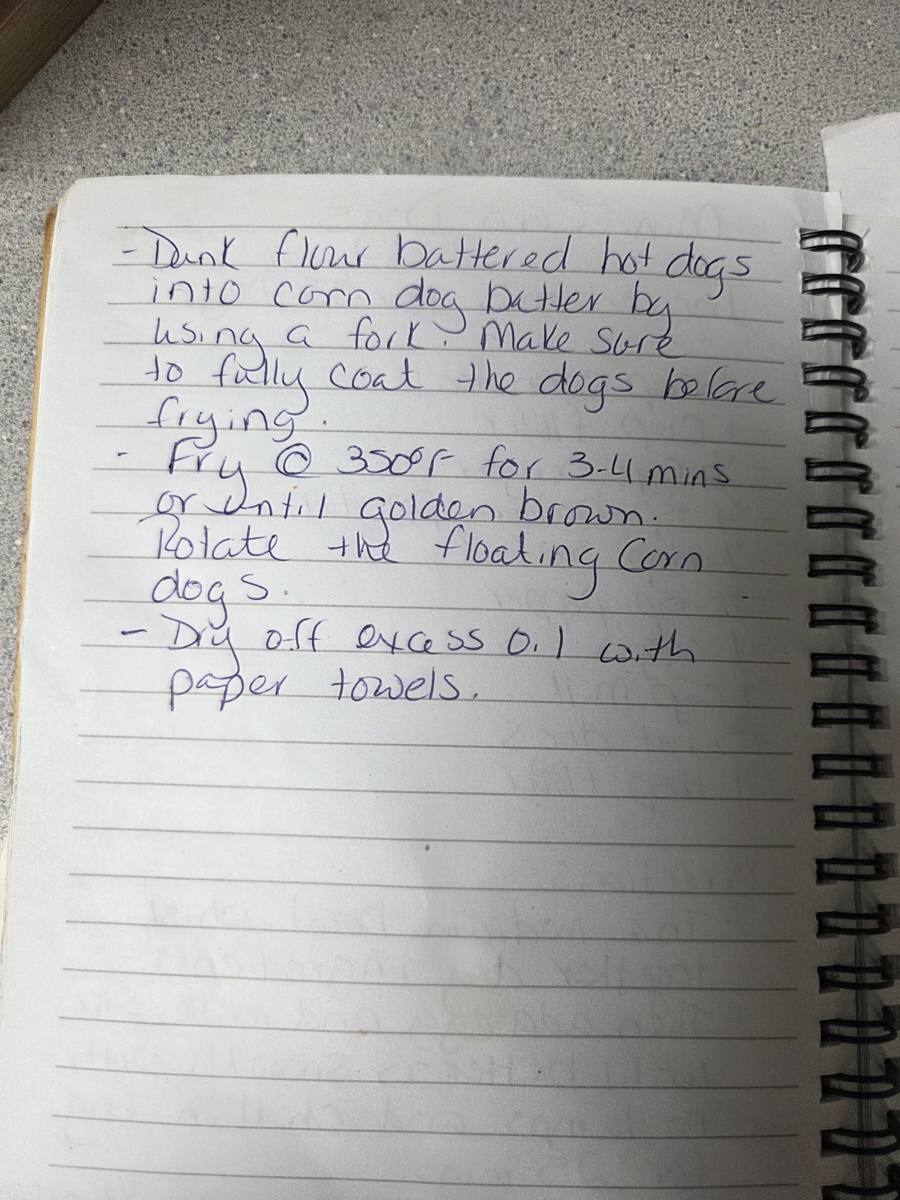 - Dunk flour battered hot dogs
into corn dog batter by
using a fork. Make sure
to fully coat the dogs before
frying.
- Fry @ 350°F for 3-4 mins
or until golden brown.
Rotate the floating Corn
dogs.
- Dry off excess oil with
paper towels.